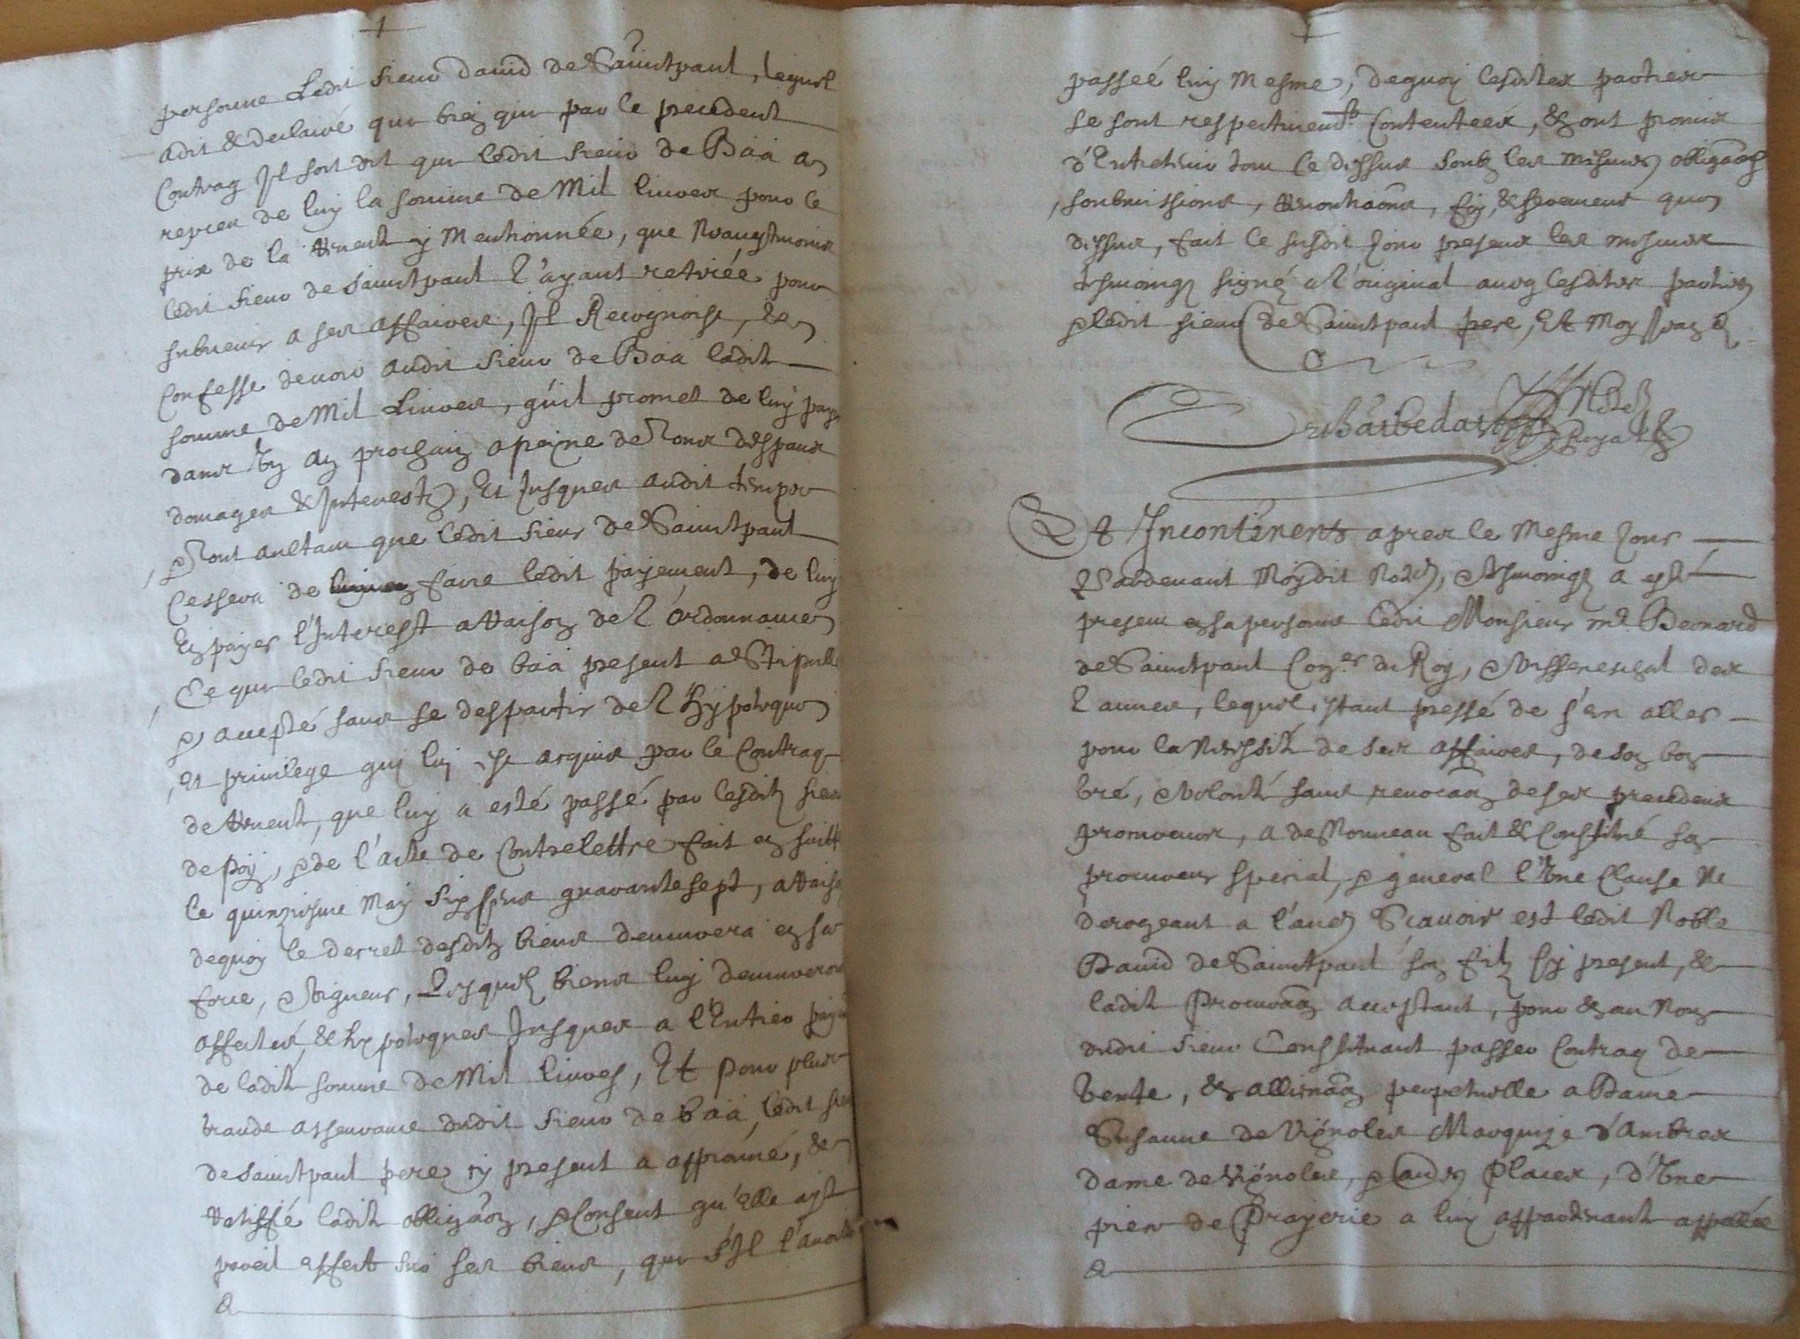 personne Ledit sieur david de Sainctpaul, lequel
a dit & declairé que bien que par le precedent
Contrag Il soit dit que ledit sieur de Baa a
repceu de luy la somme de Mil liures pour le
prix de la vente y Mentionnée, que
ledit sieur de Sainctpaul l'ayant retirée pour
subuenir a ses affaires, Il Recognoist, &
Confesse deuoir audit sieur de Baa ladite
somme de Mil Liures, qu'il promet de luy paye
dans Un an prochain a peine de tous despans
domages & Interests, Et Jusques audit temps
& tout aultant que ledit sieur de Sainctpaul
Cessera de faire ledit payement, de luy
En payer l'Interest a Raison de l'ordonnance
, Ce que ledit sieur de baa present a Stipullé
& accepté sans se despartir de l'hypoteque
, Et priuilege quy luy est acquis par le Contrag
de Vente, que luy a esté passé par lesdits sieurs
de Poÿ, & de l'acte de Contrelettre fait en suitte
le quinziesme May six cens quarantesept, a Raison
dequoy le decret desdits biens demurera en sa
force, & Vigueur, Lesquels biens luy demureront
affectés, & hypoteques Jusques a l'Entier paye
de ladite somme de Mil liures, Et pour plus
grande asseurance dudit sieur de baa, ledit sieur
de Sainctpaul pere cy present a approuué, &
Ratiffié ladite obligaon, & Consent qu'Elle ayt
pareil effect sur ses biens, que s'Il l'auoit
&
passée luy Mesme, dequoy lesdites parties
se sont respectiuemt Contentées, & ont promis
d'Entretenir tout Ce dessus soubz les mesmes obligaons
, soubmissions, renontiaons, foy, & serement que
dessus, fait Ce susdit Jour presens les mesmes
tesmoings signés a l'original aueq lesdites parties
& ledit sieur de Sainctpaul pere, Et Moy
Barbedat Note
Royal
Et Incontinent apres le Mesme Jour
Pardeuant Moÿdit Notre, & tesmoings a esté
present en sa personne ledit Monsieur Me Bernard
de Sainctpaul Coner du Roy, & Visseneschal des
Lannes, lequel, estant pressé de s'En aller
pour la Necessité de ses affaires, de son bon
gré, & Volonté sans reuocaon de ses precedens
procureurs, a de Nouueau fait & Constitué son
procureur special, & general l'Vne Clause Ne
derogeant a l'autre Scauoir est ledit Noble
Dauid de Sainctpaul son filz Icy present, &
ladite Procuraon acceptant, pour & au Nom
dudit sieur Constituant passer Contrag de
Vente, & allienaon perpetuelle a Dame
Susanne de Vignoles Marquize d'Ambres
dame de Vignoles, & autres Places, d'Vne
piece de Prayerie a luy appartenant appellée
&